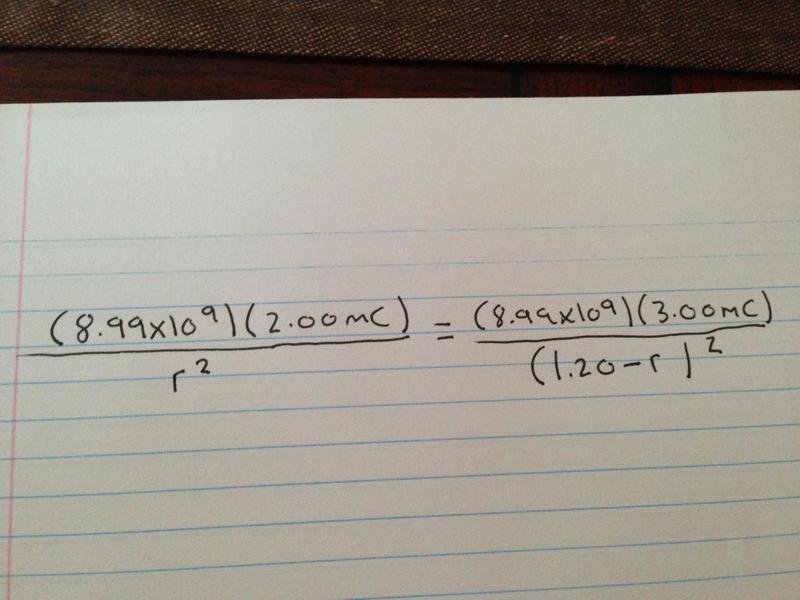 (8.99x10⁹)(2.00mC) = (8.99x10⁹)(3.00mC)
r² (1.20-r)²